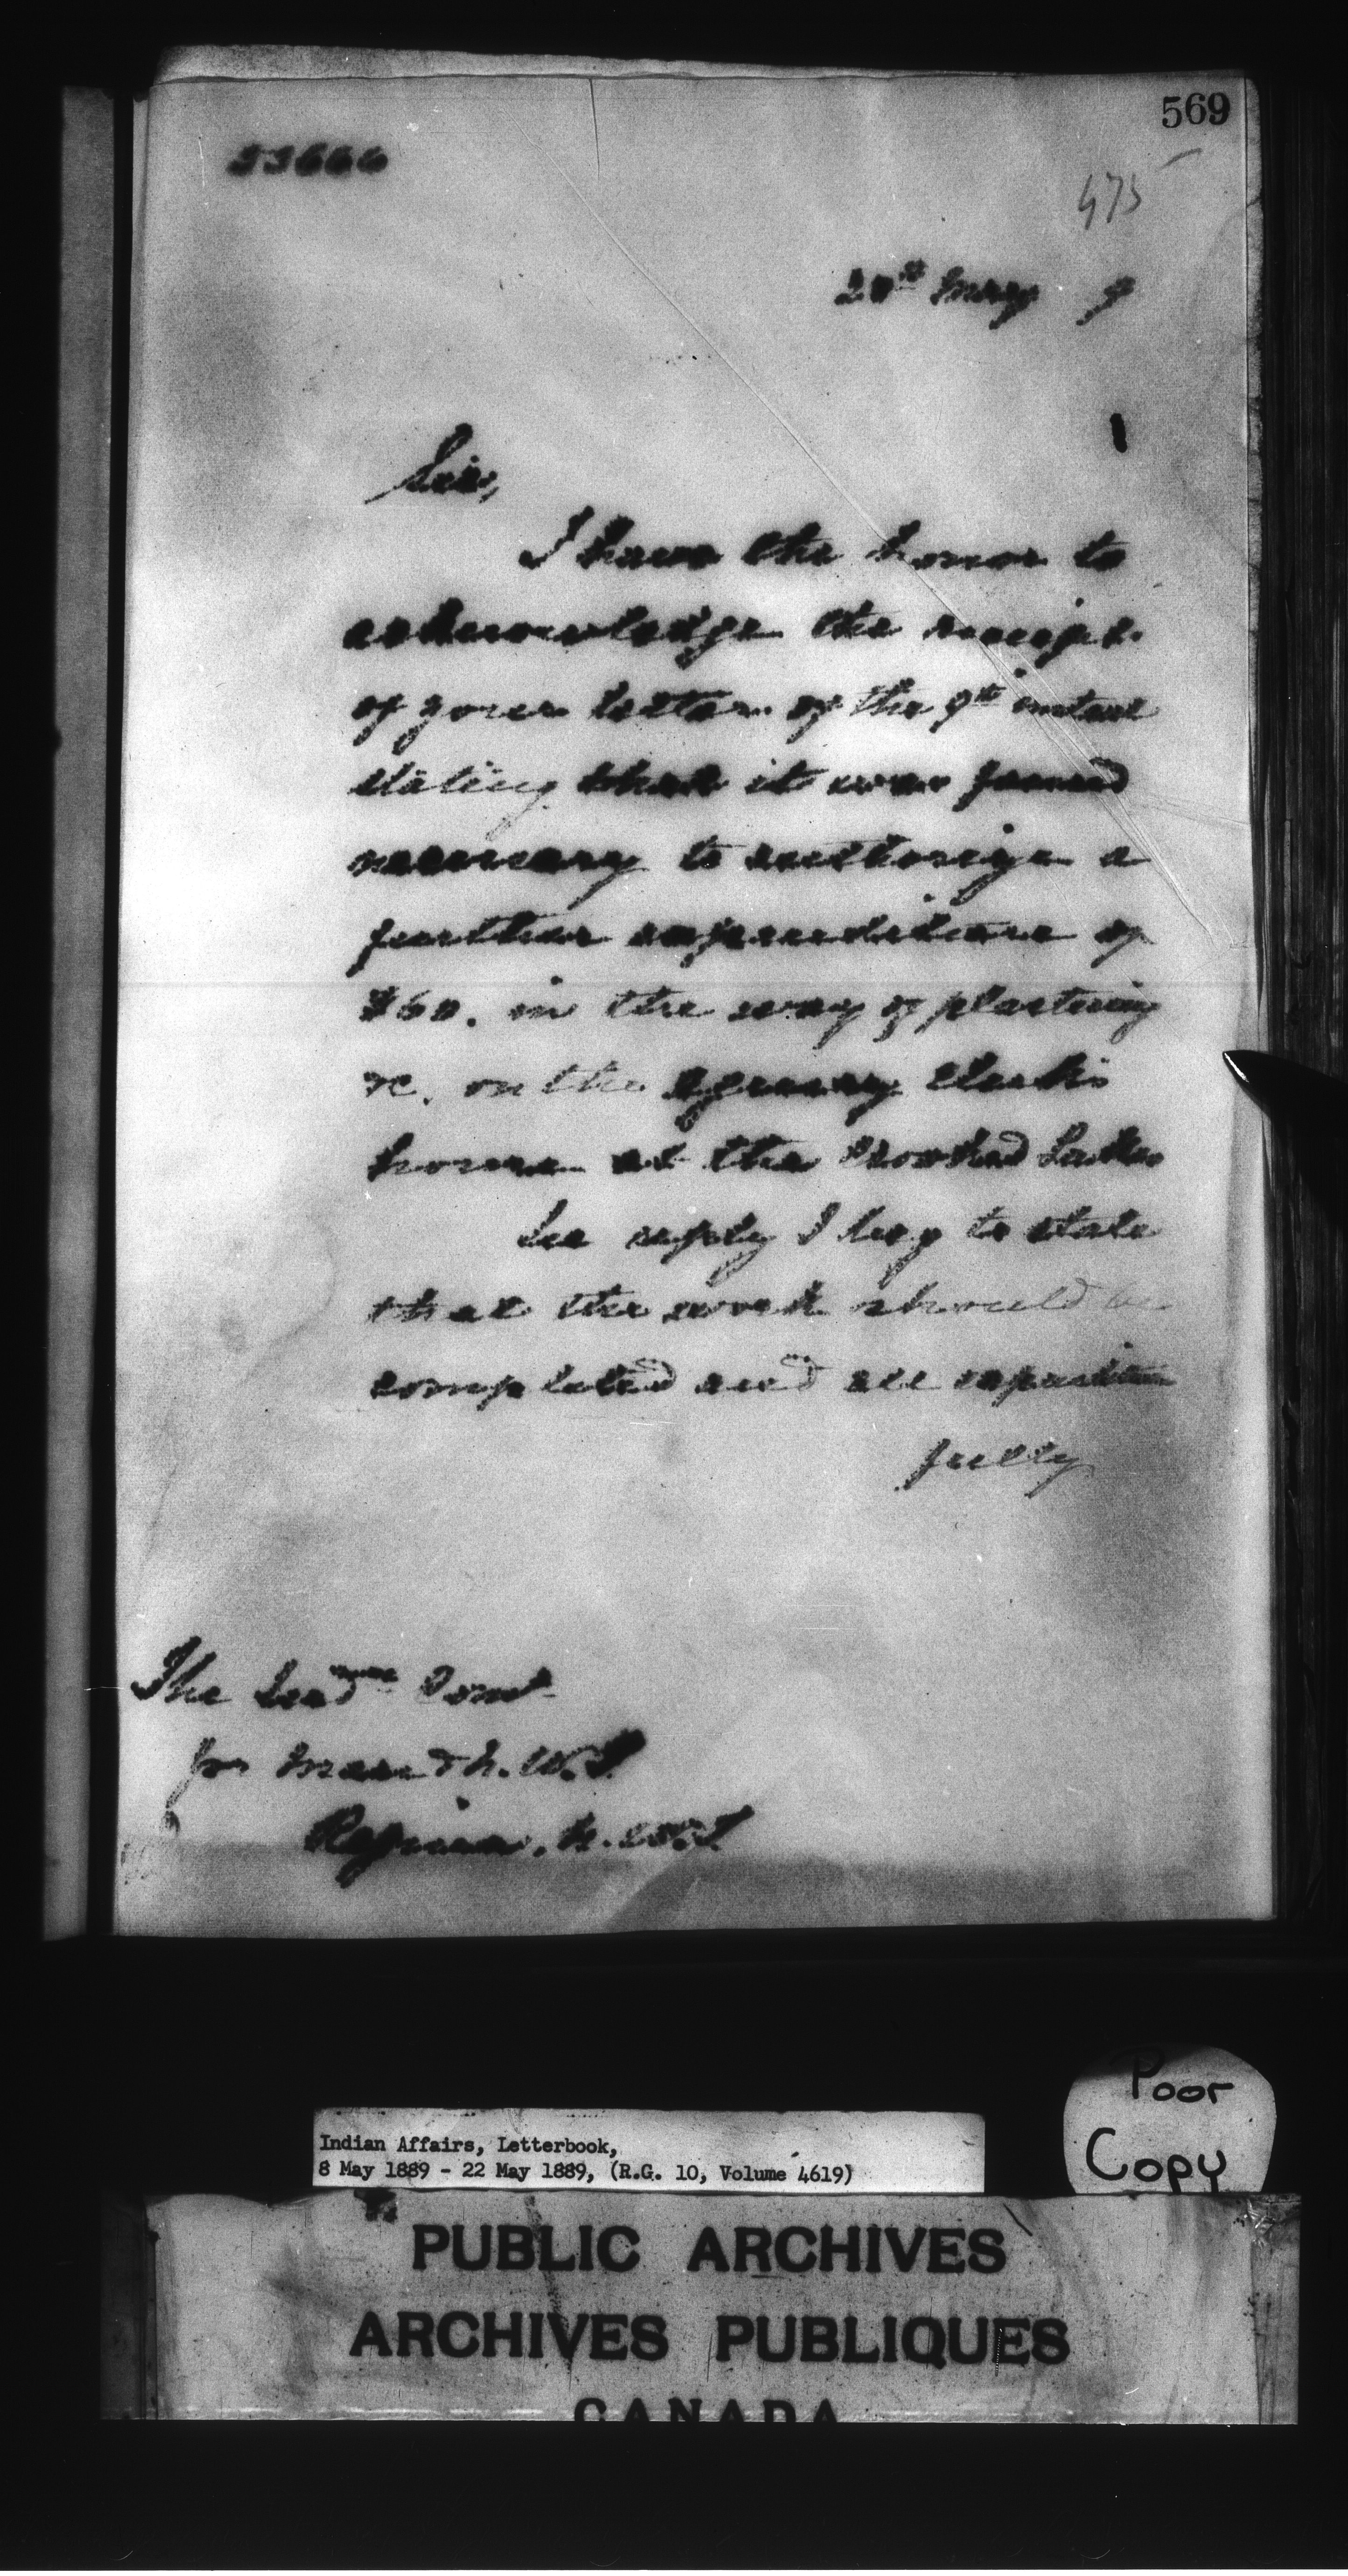 569
53666
475
20th May 9
Sir,
I have the honor to
acknowledge the receipt
of your letter of the 9th instant
stating that it was found
necessary to authorize a
further expenditure of
$60. in the way of plastering
&c. on the Agency Clerk's
house at the Crooked Lakes
In reply I beg to state
that the work should be
completed and all expenditure
fully
The Indn Comr
for Man & N.W.T.
Regina, N.W.T.
Poor
Copy
Indian Affairs, Letterbook,
8 May 1889 - 22 May 1889, (R.G. 10, Volume 4619)
PUBLIC ARCHIVES
ARCHIVES PUBLIQUES
CANADA